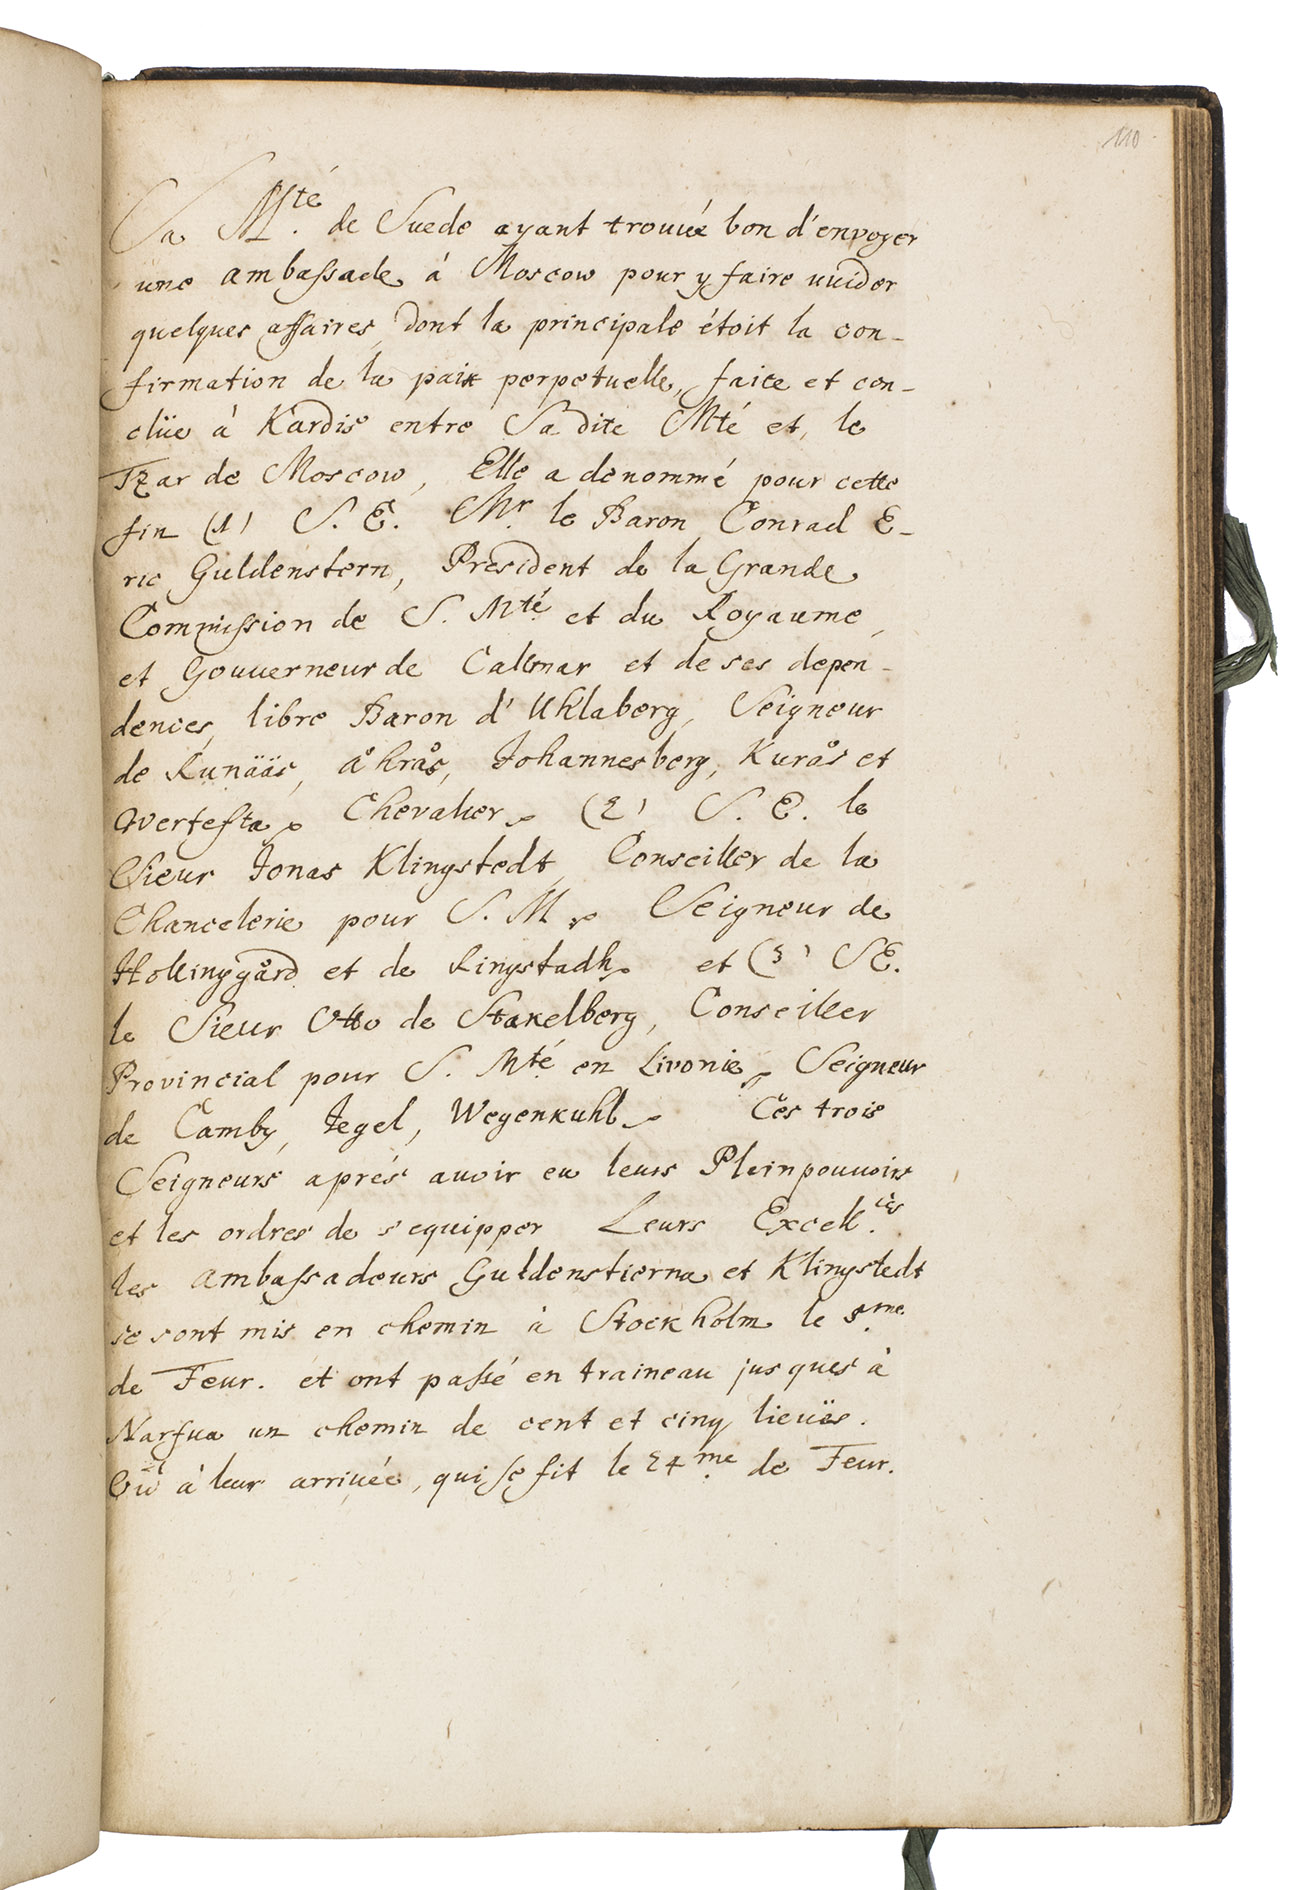 110
Sa M.té de Suede ayant trouvé bon d'envoyer
une ambassade à Moscow pour y faire vuider
quelques affaires, dont la principale étoit la con-
firmation de la paix perpetuelle, faite et con-
clüe à Kardis entre Sa dite Mté et, le
Tzar de Moscow, Elle a denommé pour cette
fin (1) S. E. Mr. le Baron Conrad E-
ric Guldenstern, President de la Grande
Commission de S. Mté et du Royaume,
et Gouverneur de Callmar et de ses depen-
dences, libre Baron d'Uhlaberg, Seigneur
de Runääs, åhrås, Johannesberg, Kurås et
Wertesta, Chevalier, (2) S. E. le
Sieur Jonas Klingstedt, Conseiller de la
Chancelerie pour S. M, Seigneur de
Hollinggård et de Ringstadh, et (3) S E.
le Sieur Otto de Stakelberg, Conseiller
Provincial pour S. Mté en Livonie, Seigneur
de Camby, Jegel, Wegenkuhl, Ces trois
Seigneurs aprés avoir eu leurs Pleinpouvoirs
et les ordres de s'equipper Leurs Excell.ces
les ambassadeurs Guldenstierna et Klingstedt
se sont mis en chemin à Stockholm le 8.me
de Feur. et ont passé en traineau jusques à
Narfua un chemin de cent et cinq lieuës.
Où à leur arrivée, qui se fit le 24.me de Feur.